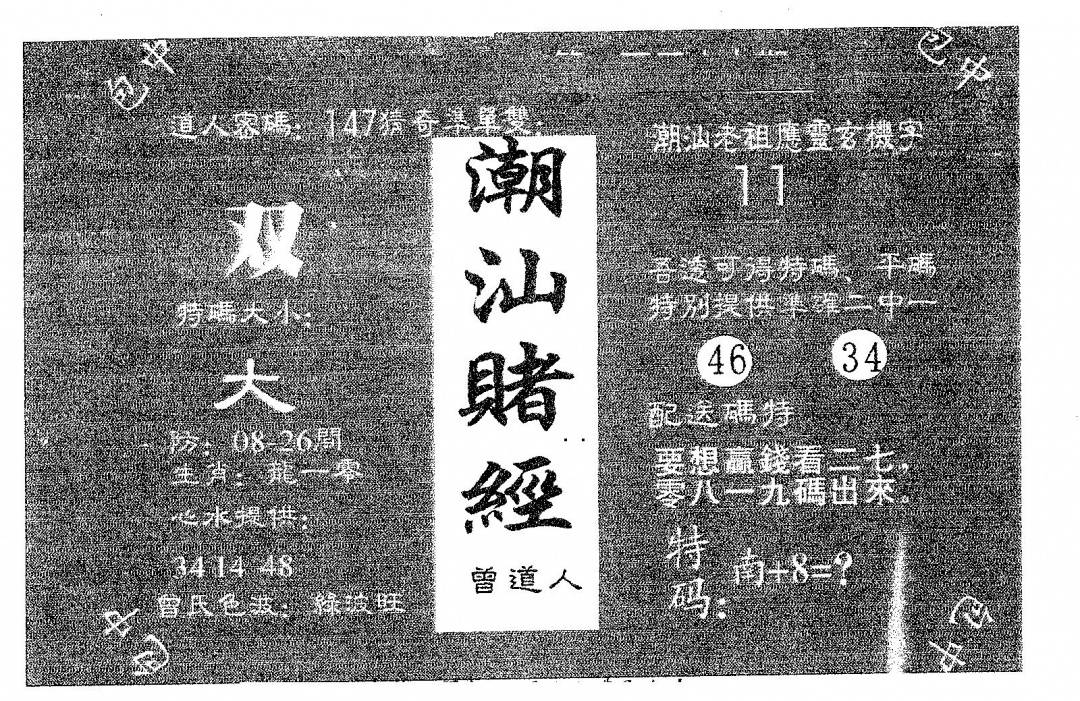 包中
包中
道人密碼：147猜奇準單雙：
双
特碼大小：
大
防：08-26開
生肖：龍一零
心水提供：
34 14 48
曾氏色波：綠波旺
潮汕賭經
曾道人
潮汕老祖應靈玄機字
11
吾透可得特碼、平碼
特別提供準確二中一
46 34
配送碼特
要想贏錢看二七，
零八一九碼出來。
特码：
南+8=?
包中
包中